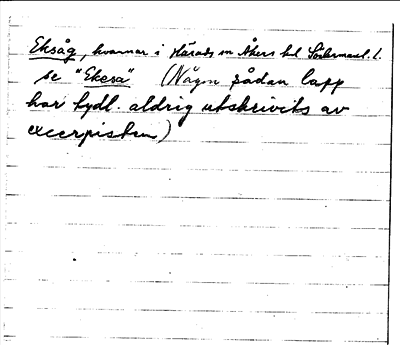 Eksåg, kvarnar i Härads sn Åkers hd Södermanl. l.
se "Ekeså" (Någon sådan lapp
har tydl. aldrig utskrivits av
excerpisten)